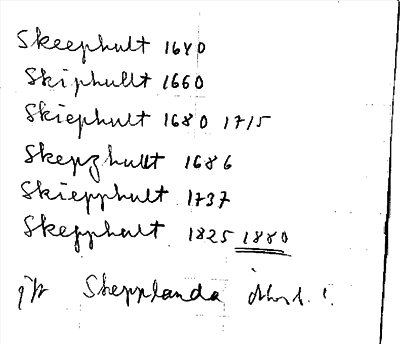 Skeephult 1640
Skiphullt 1660
Skiephult 1680 1715
Skepzhult 1686
Skiepphult 1737
Skepphult 1825 1880
Skepplanda